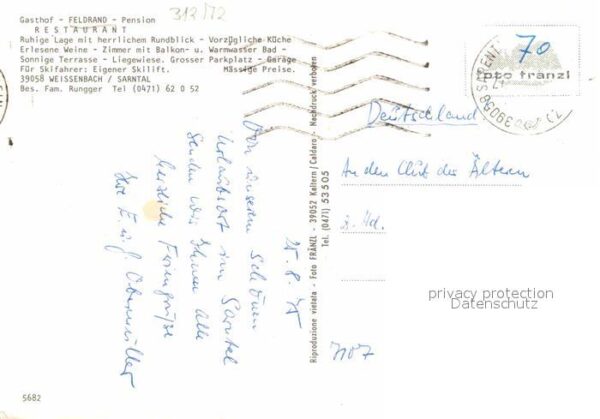 Gasthof - FELDRAND - Pension
RESTAURANT
Ruhige Lage mit herrlichem Rundblick - Vorzügliche Küche
Erlesene Weine - Zimmer mit Balkon- u. Warmwasser Bad -
Sonnige Terrasse - Liegewiese. Grosser Parkplatz - Garage
Für Skifahrer: Eigener Skilift. Mässige Preise.
39058 WEISSENBACH / SARNTAL
Bes. Fam. Rungger Tel (0471) 62 0 52
312/72
70
foto fränzl
39058
Deutschland
An den Club des Älteren
z. Hd.
privacy protection
Datenschutz
7107
25.8.75
Von unserem schönen
Urlaubsort im Sarntal
senden wir Ihnen alle
herzliche Feriengrüße
Ihre E. u. J. Obermüller
Riproduzione vietata - Foto FRÄNZL - 39052 Kaltern / Caldaro - Nachdruck verboten
Tel. (0471) 53505
5682